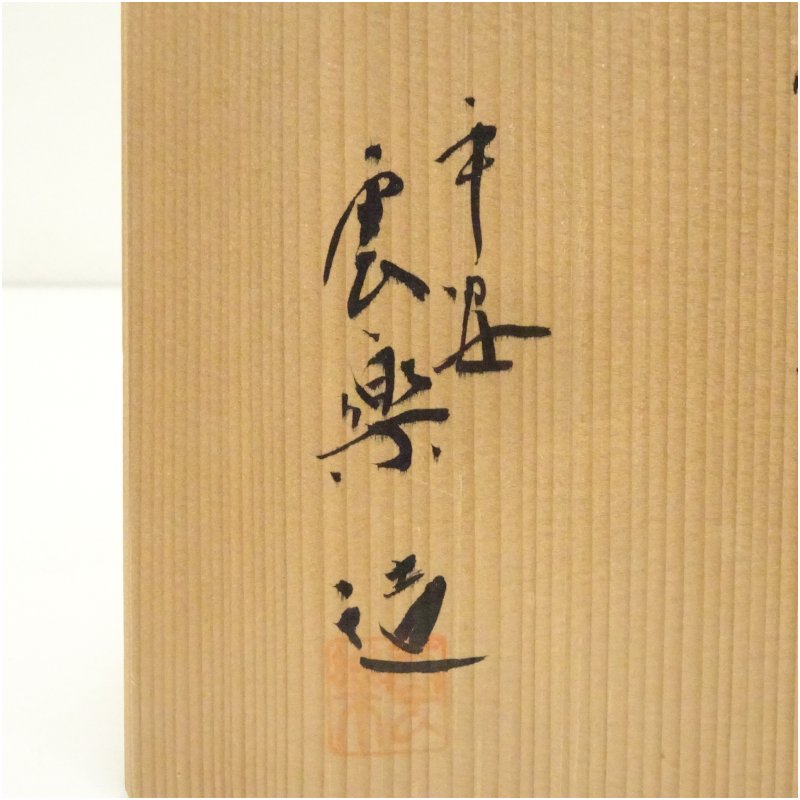 平安
雲楽造